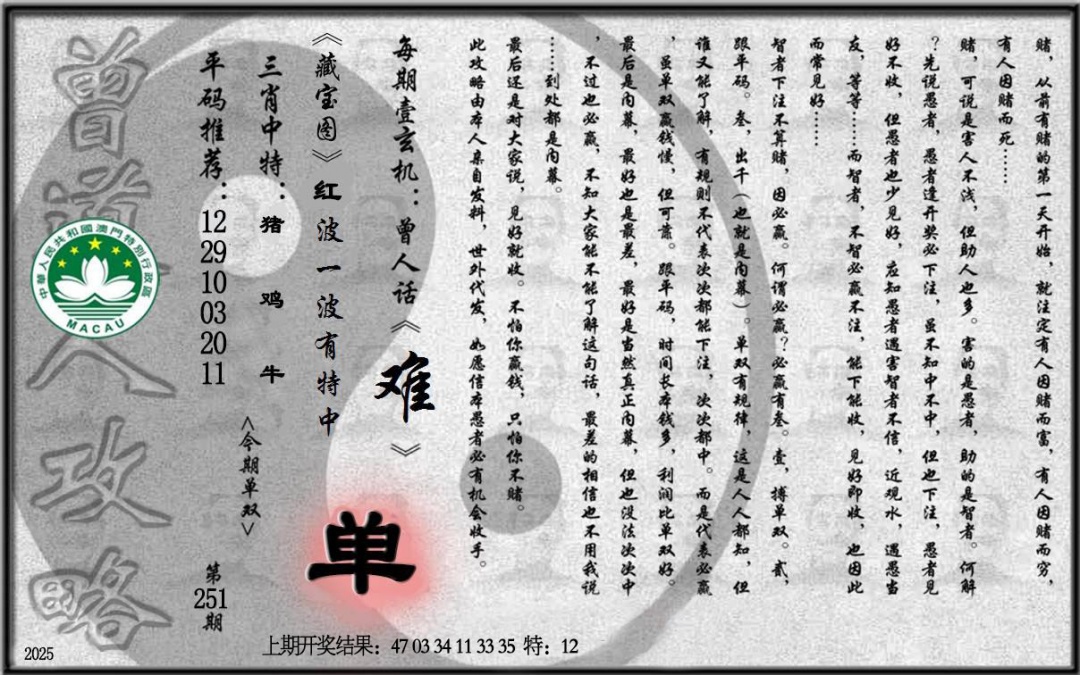 赌，从前有赌的第一天开始，就注定有人因赌而富，有人因赌而穷，
有人因赌而死……
赌，可说是害人不浅，但助人也多。害的是愚者，助的是智者。何解
？先说愚者，愚者逢开奖必下注，虽不知中不中，但也下注，愚者见
好不收，但愚者也少见好，应知愚者遇害智者不信，近观水，遇愚当
友，等等……而智者，不智必赢不注，能下能收，见好即收，也因此
而常见好……
智者下注不算赌，因必赢。何谓必赢？必赢有叁。壹，搏单双。贰，
跟平码。叁，出千（也就是内幕）。单双有规律，这是人人都知，但
谁又能了解，有规则不代表次次都能下注，次次都中。而是代表必赢
，虽单双赢钱慢，但可靠。跟平码，时间长本钱多，利润比单双好。
最后是内幕，最好也是最差，最好是当然真正内幕，但也没法次次中
，不过也必赢，不知大家能不能了解这句话，最差的相信也不用我说
……到处都是内幕。
最后还是对大家说，见好就收。不怕你赢钱，只怕你不赌。
此攻略由本人亲自发料，世外代发，如愿信本愚者必有机会收手。
每期壹玄机：曾人话《难》
《藏宝图》红波一波有特中
单
三肖中特：猪 鸡 牛
<今期单双>
平码推荐：12 29 10 03 20 11
第251期
曾道人攻略
中華人民共和國澳門特別行政區
MACAU
上期开奖结果：47 03 34 11 33 35 特：12
2025